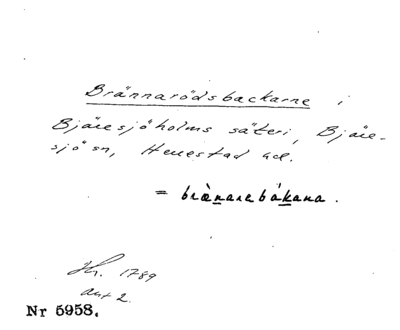 Brännarödsbackarne i
Bjäresjöholms säteri, Bjäre-
sjö sn, Herrestad hd.
= bræ̀narebákana.
1789
ant 2.
Nr 5958.